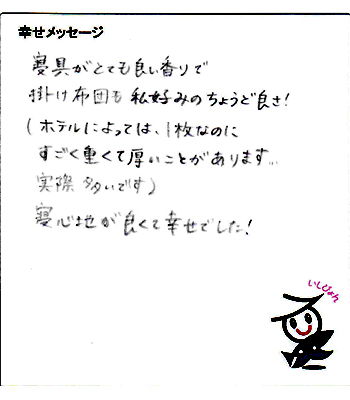 幸せメッセージ
寝具がとても良い香りで
掛け布団も私好みのちょうど良さ!
(ホテルによっては、1枚なのに
すごく重くて厚いことがあります...
実際多いです)
寝心地が良くて幸せでした!
いしぴょん